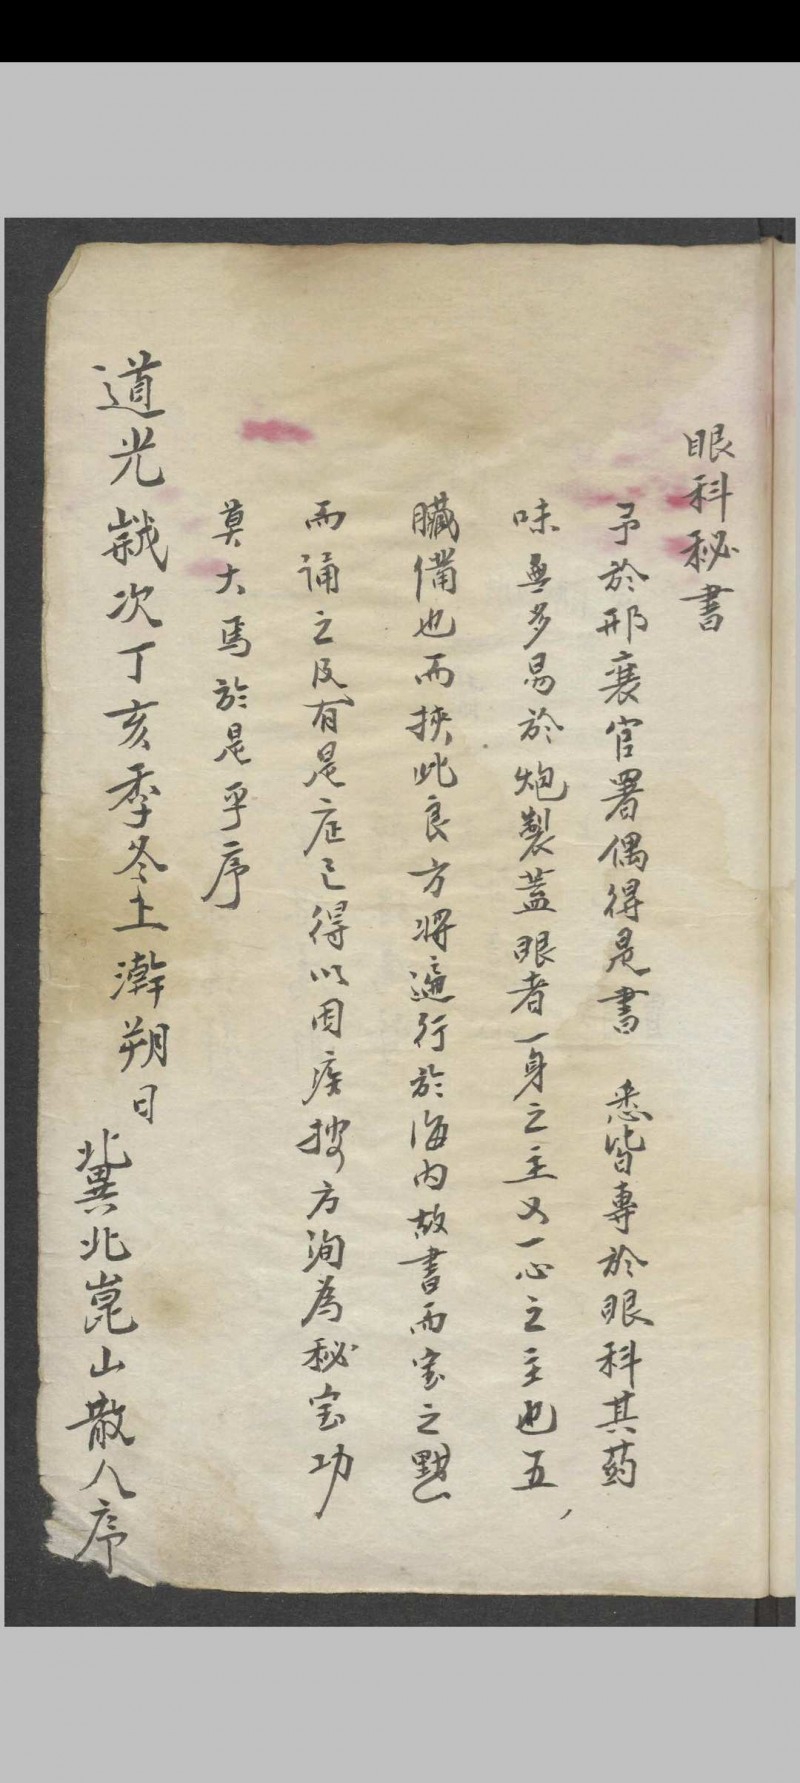 眼科秘書
予於邢襄官署偶得是書 悉皆專於眼科其药
味無多易於炮製蓋眼者一身之主又一心之主也五
臟備也而挾此良方將遍行於海内故書而宝之黙
而誦之及有是症已得以因疾搜方洵為秘宝功
莫大焉於是乎序
道光歲次丁亥季冬上澣朔日 冀北崑山散人序